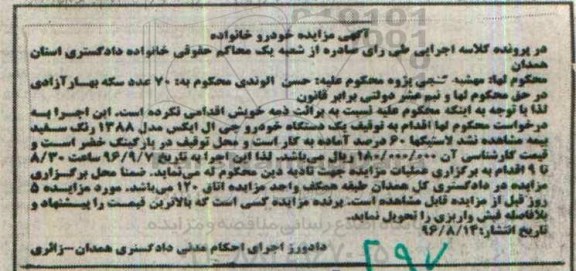 آگهی مزایده خودرو خانواده
در پرونده کلاسه اجرایی طی رای صادره از شعبه یک محاکم حقوقی خانواده دادگستری استان
همدان
محکوم لها: مهشید پژوه محکوم علیه: حسن الوندی محکوم به: ۷۰ عدد سکه بهار آزادی
در حق محکوم لها و نیم عشر دولتی برابر قانون
لذا با توجه به اینکه محکوم علیه نسبت به برائت ذمه خویش اقدامی نکرده است. این اجرا به
درخواست محکوم لها اقدام به توقیف یک دستگاه خودرو جی ال ایکس مدل ۱۳۸۸ رنگ سفید
بیمه مشاهده نشد لاستیکها ۶۰ درصد آماده به کار است و محل توقیف در پارکینگ خضر است و
قیمت کارشناسی آن ۱۸۰/۰۰۰/۰۰۰ ریال می‌باشد. لذا این اجرا به تاریخ ۹۶/۹/۷ ساعت ۸/۳۰
تا ۹ اقدام به برگزاری عملیات مزایده جهت تادیه دین محکوم که می‌نماید. ضمنا محل برگزاری
مزایده در دادگستری کل همدان طبقه همکف واحد مزایده اتاق ۱۲۰ می‌باشد. مورد مزایسده ۵
روز قبل از مزایده قابل مشاهده است. برنده مزایده کسی است که بالاترین قیمت را پیشنهاد و
بلافاصله فیش واریزی را تحویل نماید.
تاریخ انتشار: ۹۶/۸/۱۴
دادورز اجرای احکام مدنی دادگستری همدان-زائری
۲۹۷